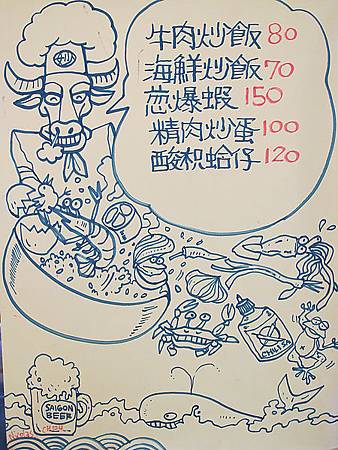 牛肉炒飯 80
海鮮炒飯 70
葱爆蝦 150
精肉炒蛋 100
酸枳蛤仔 120
CHILI
SAIGON
BEER